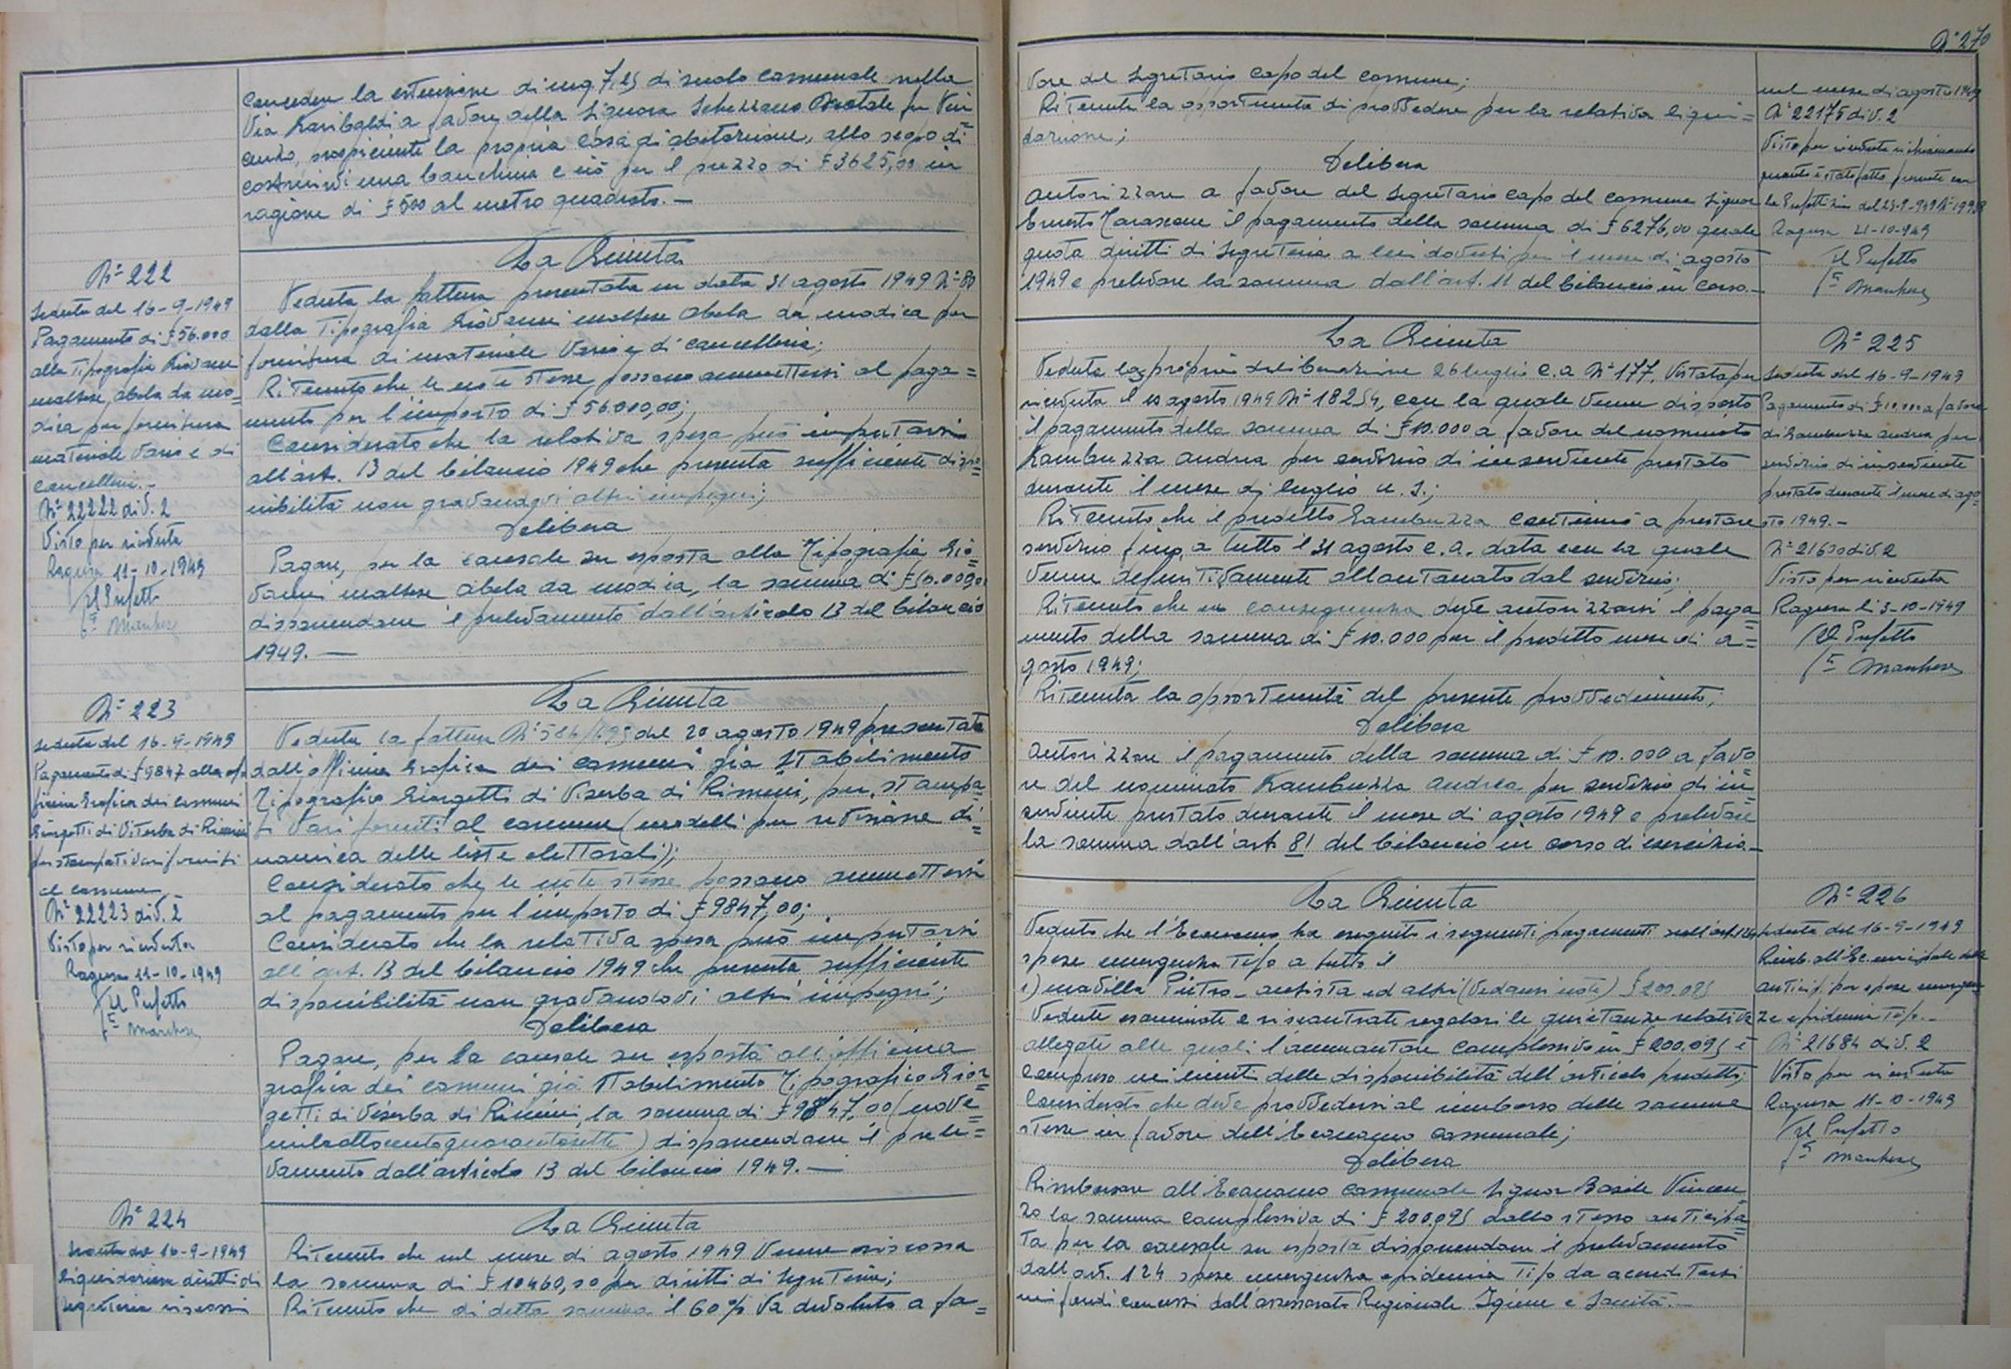 concedere la estensione di mq. 7,25 di suolo comunale nella
Via Garibaldi a favore della Signora
prospiciente la propria casa di abitazione, allo scopo di
costruirvi una banchina e ciò per il prezzo di £ 3625,00 in
ragione di £ 500 al metro quadrato. —
N° 222
Seduta del 16-9-1949
Pagamento di £ 56.000
alla Tipografia Giovanni
Maltese Abela da Mo=
dica per fornitura
materiale vario e di
cancelleria. -
N° 22222 div. 2
Visto per ricevuta
Ragusa 11-10-1949
Il Prefetto
La Giunta
Veduta la fattura presentata in data 31 agosto 1949 N° 80
dalla Tipografia Giovanni Maltese Abela da Modica per
fornitura di materiale vario e di cancelleria;
Ritenuto che le note stesse possano ammettersi al paga=
mento per l'importo di £ 56.000,00;
Considerato che la relativa spesa può imputarsi
all'art. 13 del bilancio 1949 che presenta sufficiente dispo=
nibilità non gravandovi altri impegni;
Delibera
Pagare, per la causale su esposta alla Tipografia Gio=
vanni Maltese Abela da Modica, la somma di
disponendone il prelevamento dall'articolo 13 del bilancio
1949. —
N° 223
Seduta del 16-9-1949
Pagamento di £ 9847 alla of=
ficina Grafica dei Comuni
Giorgetti di Viterba di Rimini
per stampati vari forniti
al comune
N° 22223 div. 2
Visto per ricevuta
Ragusa 11-10-1949
Il Prefetto
La Giunta
Veduta la fattura del 20 agosto 1949 presentata
dall'officina Grafica dei comuni già Stabilimento
Tipografico Giorgetti di Viserba di Rimini, per stampa=
ti vari forniti al comune (modelli per revisione di=
namica delle liste elettorali);
Considerato che le note stesse possano ammettersi
al pagamento per l'importo di £ 9847,00;
Considerato che la relativa spesa può imputarsi
all'art. 13 del bilancio 1949 che presenta sufficiente
disponibilità non gravandovi altri impegni;
Delibera
Pagare, per la causale su esposta all'officina
grafica dei comuni già Stabilimento Tipografico Gior=
getti di Viserba di Rimini, la somma di £ 9847,00 (nove=
milaottocentoquarantasette) disponendone il prele=
vamento dall'articolo 13 del bilancio 1949. —
N° 224
Seduta del 16-9-1949
liquidazione diritti di
segreteria riscossi
La Giunta
Ritenuto che nel mese di agosto 1949 venne riscossa
la somma di £ 10460,20 per diritti di segreteria;
Ritenuto che di detta somma il 60% va devoluto a fa=
N° 270
vore del Segretario capo del comune;
Ritenuta la opportunità di provvedere per la relativa liqui=
dazione;
Delibera
autorizzare a favore del Segretario capo del comune Signor
Ernesto Tarascone il pagamento della somma di £ 6276,00 quale
quota diritti di segreteria a lui dovuti per il mese di agosto
1949 e prelevare la somma dall'art. 11 del bilancio in corso. —
nel mese di agosto 1949
N° 22175 div. 2
Visto per ricevuta richiamando
quanto è stato fatto presente con
Ragusa 21-10-949
Il Prefetto
La Giunta
Veduta la propria deliberazione 26 luglio c.a. N° 177, vistata per
ricevuta il agosto 1949 N° 18254, con la quale venne disposto
il pagamento della somma di £ 10.000 a favore del nominato
Gambuzza Andrea per servizio di inserviente prestato
durante il mese di luglio u. s.;
Ritenuto che il predetto Gambuzza continuò a prestare
servizio fino a tutto il 31 agosto c.a. data con la quale
venne definitivamente allontanato dal servizio;
Ritenuto che in conseguenza deve autorizzarsi il paga=
mento della somma di £ 10.000 per il predetto mese di a=
gosto 1949;
Ritenuta la opportunità del presente provvedimento;
Delibera
autorizzare il pagamento della somma di £ 10.000 a favo=
re del nominato Gambuzza Andrea per servizio di in=
serviente prestato durante il mese di agosto 1949 e prelevare
la somma dall'art. 81 del bilancio in corso di esercizio. —
N° 225
Seduta del 16-9-1949
Pagamento di £ 10.000 a favore
di Gambuzza Andrea per
servizio di inserviente
prestato durante il mese di ago=
sto 1949. -
N° 21630 div. 2
Visto per ricevuta
Ragusa li 3-10-1949
Il Prefetto
La Giunta
Veduto che l'Economo ha eseguito i seguenti pagamenti sull'art. 124
spese emergenza tifo a tutto il
1) Madilla Pietro - autista ed altri (vedansi note) £ 200.095
Vedute esaminate e riscontrate regolari le quietanze relative
allegate alle quali l'ammontare complessivo in £ 200.095 è
compreso nei limiti delle disponibilità dell'articolo predetto;
Considerato che deve provvedersi al rimborso delle somme
stesse in favore dell'Economo comunale;
Delibera
Rimborsare all'Economo comunale Signor Basile Vincen=
zo la somma complessiva di £ 200.095 dallo stesso anticipa=
ta per la causale su esposta disponendone il prelevamento
dall'art. 124 spese emergenza epidemia tifo da accreditarsi
nei fondi concessi dall'assessorato Regionale Igiene e Sanità. —
N° 226
Seduta del 16-9-1949
Rimb. all'Ec. municipale delle
anticip. per spese emergen=
ze epidemia tifo. -
N° 21684 div. 2
Visto per ricevuta
Ragusa 11-10-1949
Il Prefetto